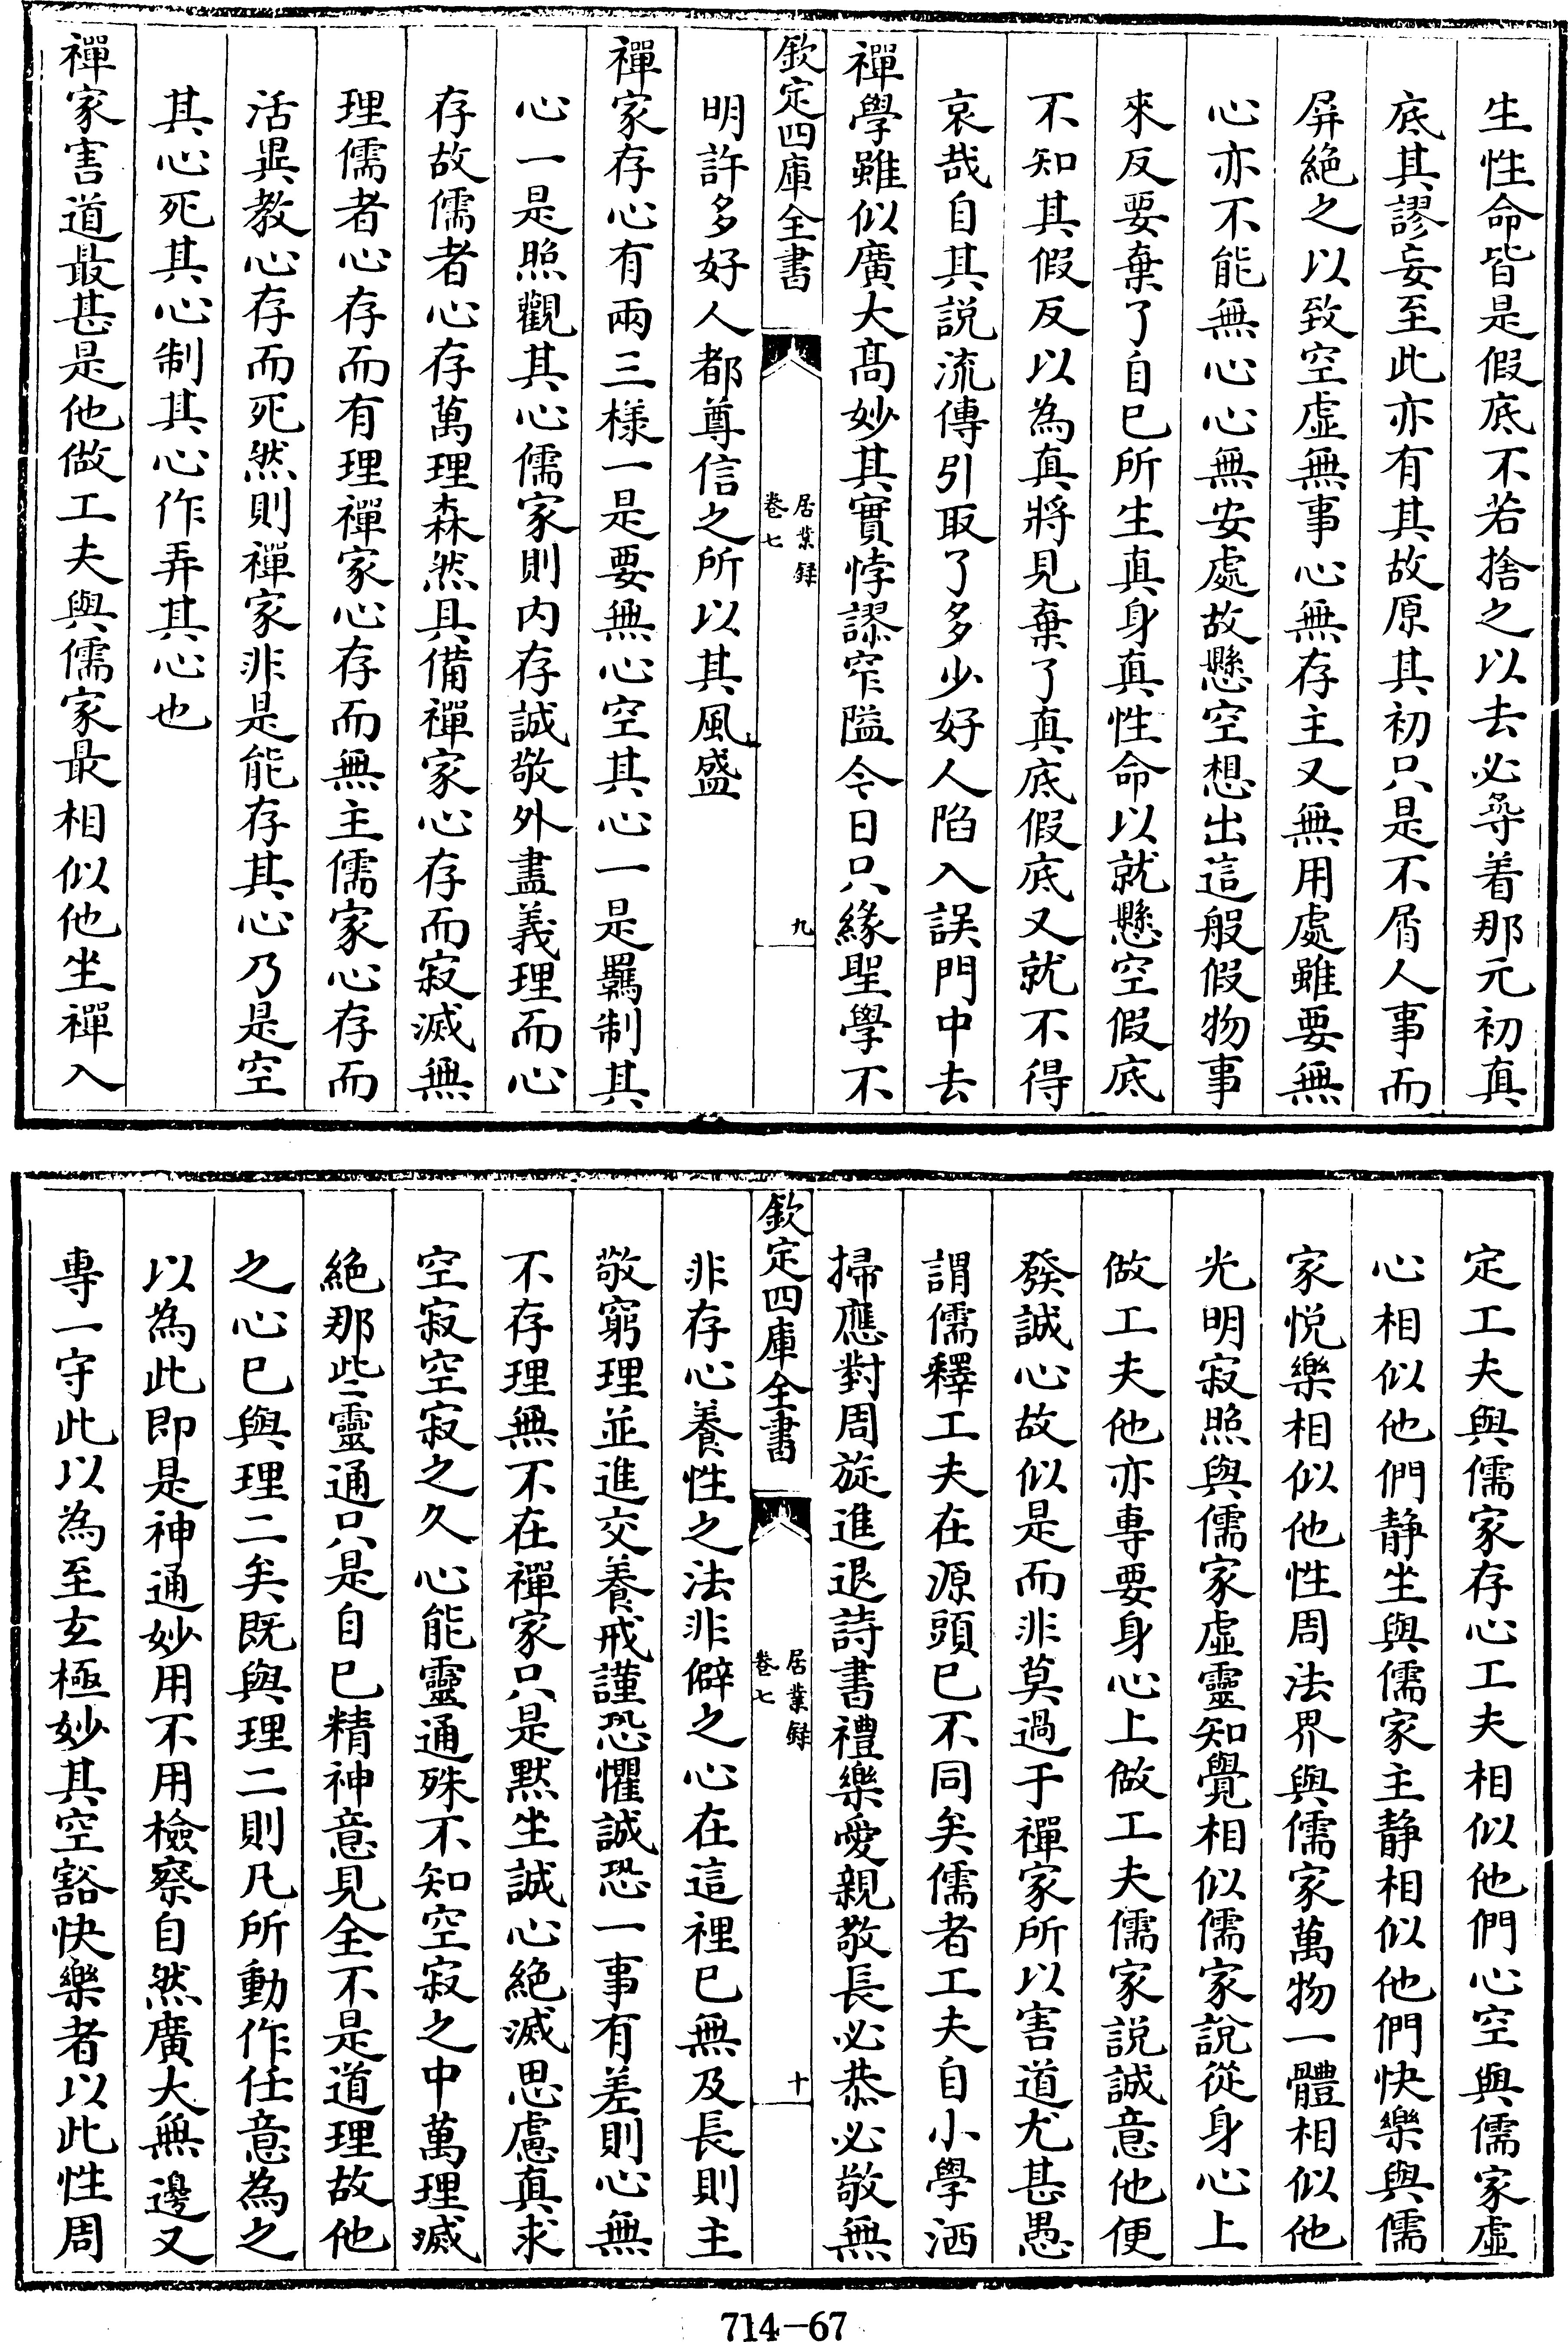 生性命皆是假底不若捨之以去必尋着那元初真
底其謬妄至此亦有其故原其初只是不屑人事而
屏絶之以致空虛無事心無存主又無用處雖要無
心亦不能無心心無安處故懸空想出這般假物事
來反要棄了自已所生真身真性命以就懸空假底
不知其假反以為真將見棄了真底假底又就不得
哀哉自其説流傳引取了多少好人陷入誤門中去
禪學雖似廣大髙妙其實悖謬窄隘今日只緣聖學不
欽定四庫全書
居業録
卷七
九
明許多好人都尊信之所以其風盛
禪家存心有兩三様一是要無心空其心一是羈制其
心一是照觀其心儒家則内存誠敬外盡義理而心
存故儒者心存萬理森然具備禪家心存而寂滅無
理儒者心存而有理禪家心存而無主儒家心存而
活異教心存而死然則禪家非是能存其心乃是空
其心死其心制其心作弄其心也
禪家害道最甚是他做工夫與儒家最相似他坐禪入
定工夫與儒家存心工夫相似他們心空與儒家虛
心相似他們静坐與儒家主静相似他們快樂與儒
家悦樂相似他性周法界與儒家萬物一體相似他
光明寂照與儒家虛靈知覺相似儒家說從身心上
做工夫他亦專要身心上做工夫儒家説誠意他便
發誠心故似是而非莫過于禪家所以害道尤甚愚
謂儒釋工夫在源頭已不同矣儒者工夫自小學洒
掃應對周旋進退詩書禮樂愛親敬長必恭必敬無
欽定四庫全書
居業録
卷七
十
非存心養性之法非僻之心在這裡已無及長則主
敬窮理並進交養戒謹恐懼誠恐一事有差則心無
不存理無不在禪家只是黙坐誠心絶滅思慮真求
空寂空寂之久心能靈通殊不知空寂之中萬理滅
絶那些靈通只是自已精神意見全不是道理故他
之心已與理二矣既與理二則凡所動作任意為之
以為此即是神通妙用不用檢察自然廣大無邊又
專一守此以為至玄極妙其空豁快樂者以此性周
714-67